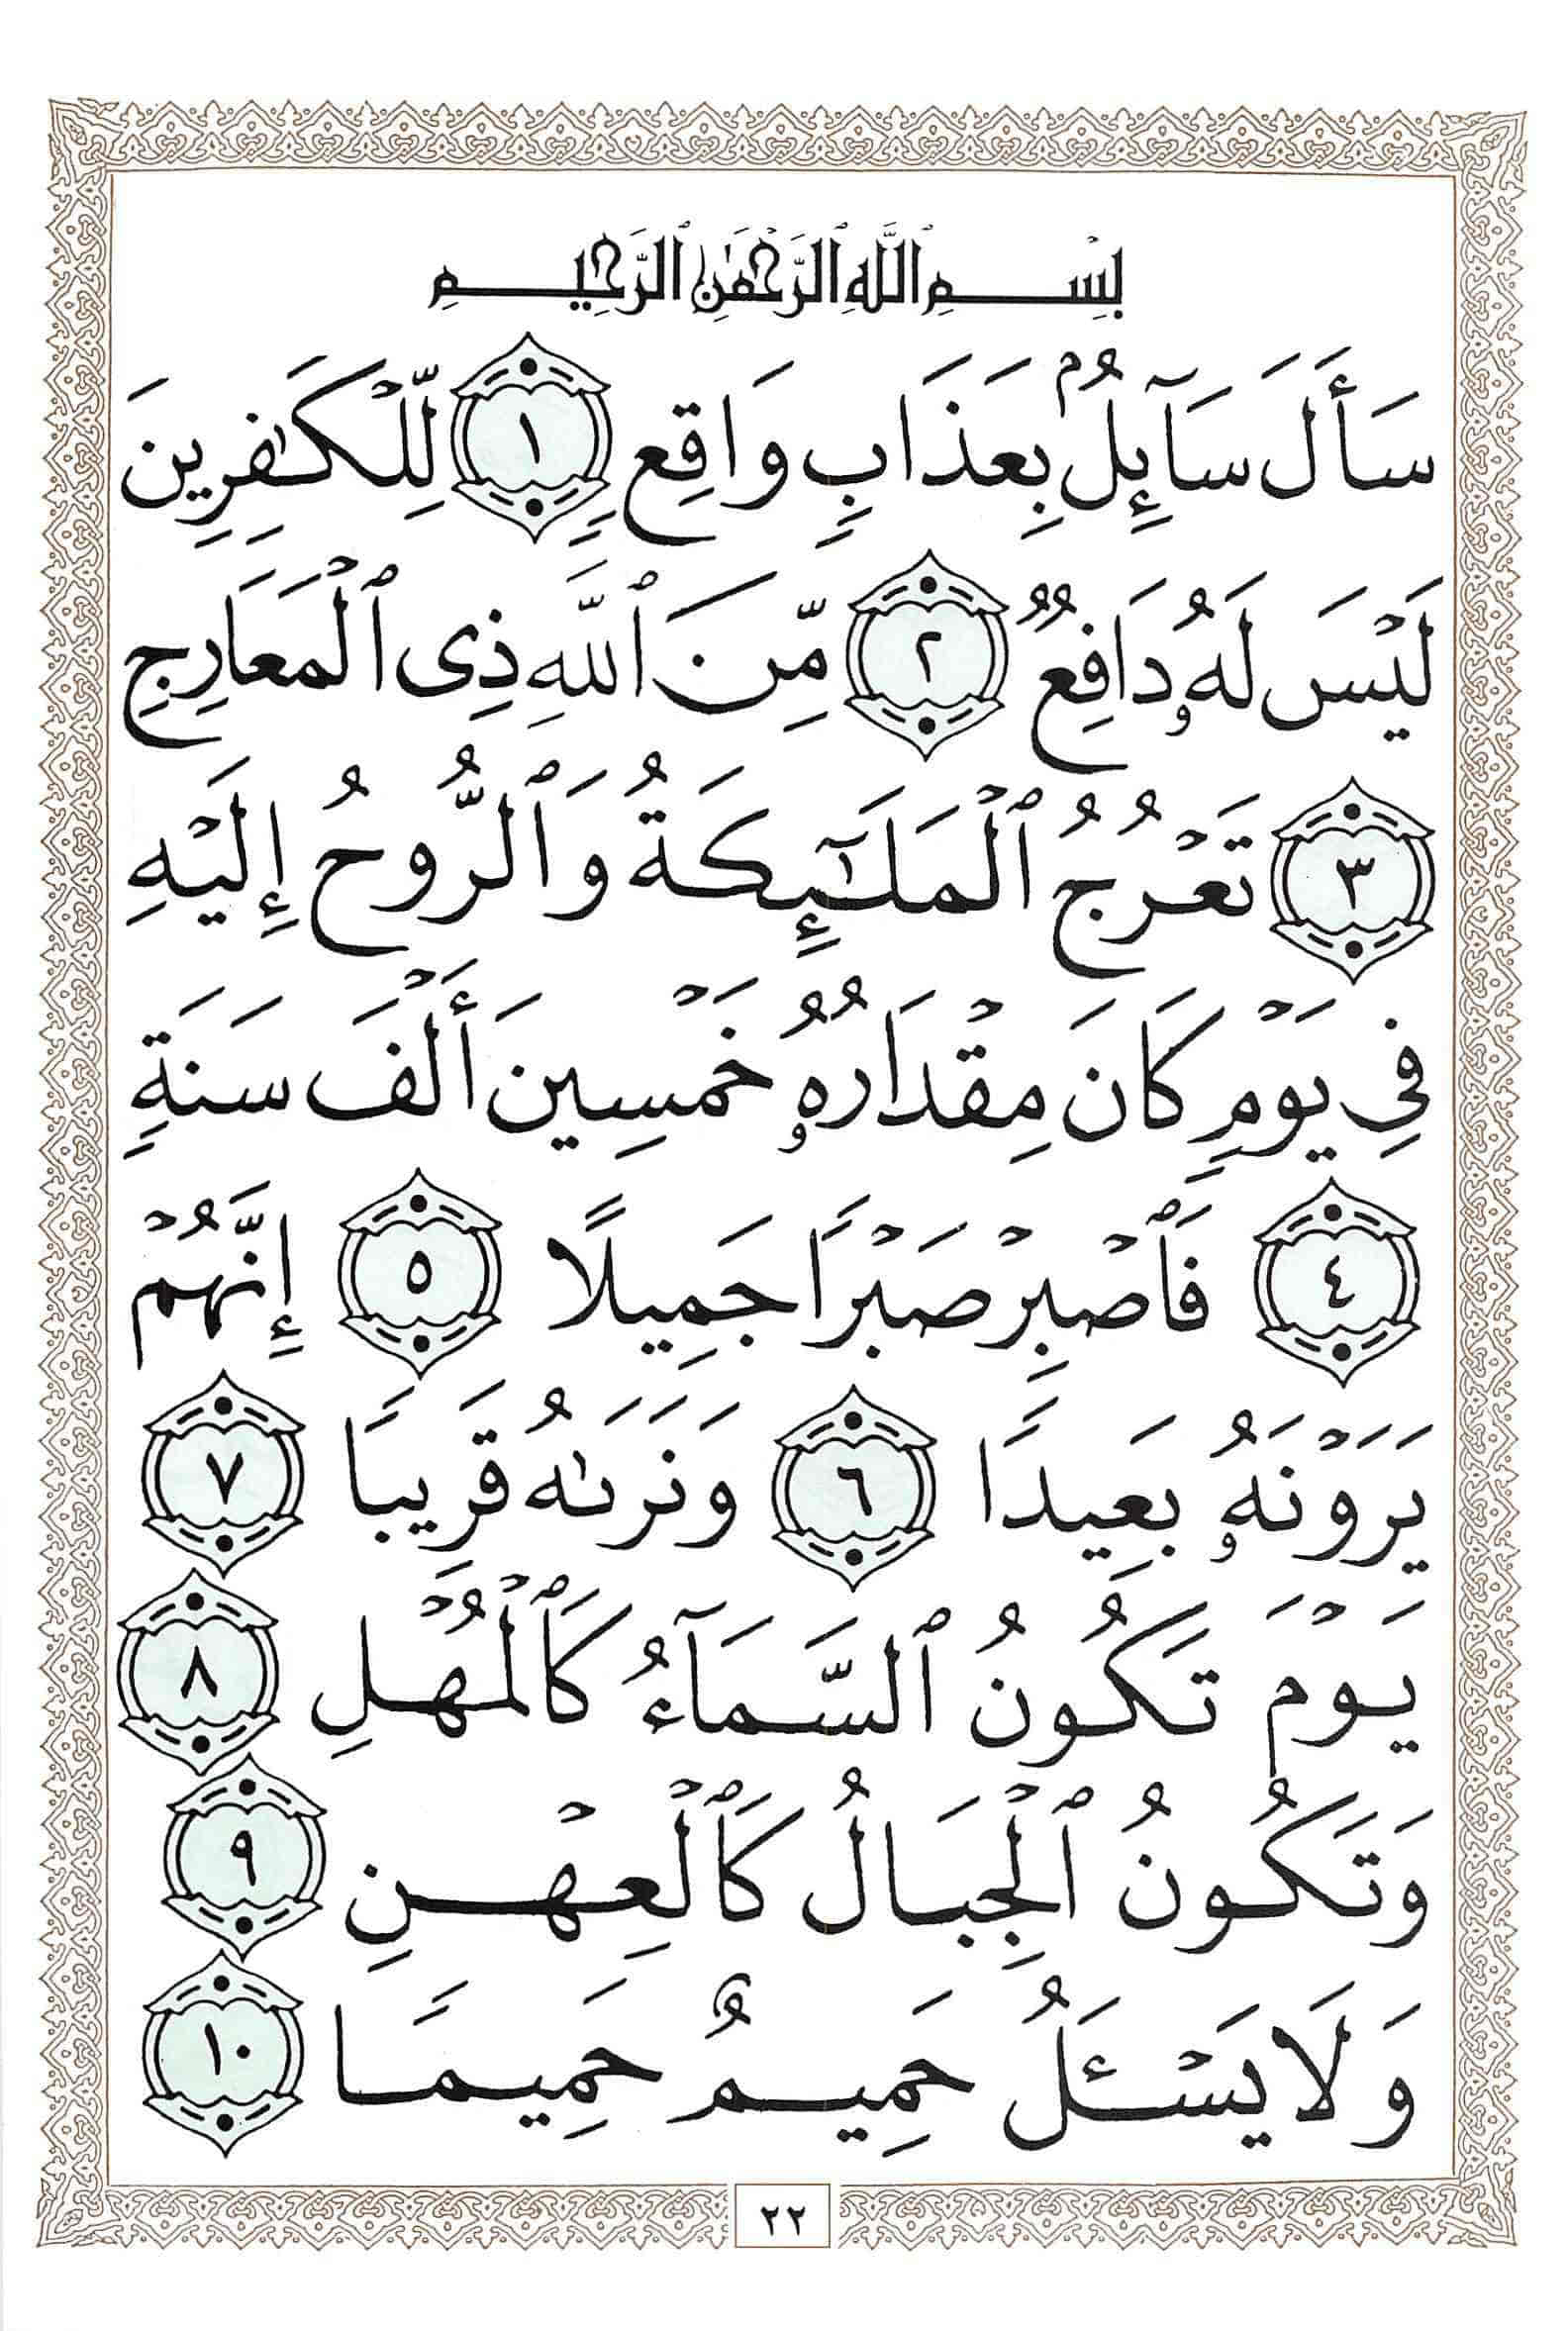 بِسْمِ ٱللَّهِ ٱلرَّحْمَٰنِ ٱلرَّحِيمِ
سَأَلَ سَآئِلُۢ بِعَذَابٍ وَاقِعٍ ١ لِّلْكَٰفِرِينَ
لَيْسَ لَهُۥ دَافِعٌ ٢ مِّنَ ٱللَّهِ ذِى ٱلْمَعَارِجِ
٣ تَعْرُجُ ٱلْمَلَٰٓئِكَةُ وَٱلرُّوحُ إِلَيْهِ
فِى يَوْمٍ كَانَ مِقْدَارُهُۥ خَمْسِينَ أَلْفَ سَنَةٍ
٤ فَٱصْبِرْ صَبْرًا جَمِيلًا ٥ إِنَّهُمْ
يَرَوْنَهُۥ بَعِيدًا ٦ وَنَرَىٰهُ قَرِيبًا ٧
يَوْمَ تَكُونُ ٱلسَّمَآءُ كَٱلْمُهْلِ ٨
وَتَكُونُ ٱلْجِبَالُ كَٱلْعِهْنِ ٩
وَلَا يَسْـَٔلُ حَمِيمٌ حَمِيمًا ١٠
٢٢